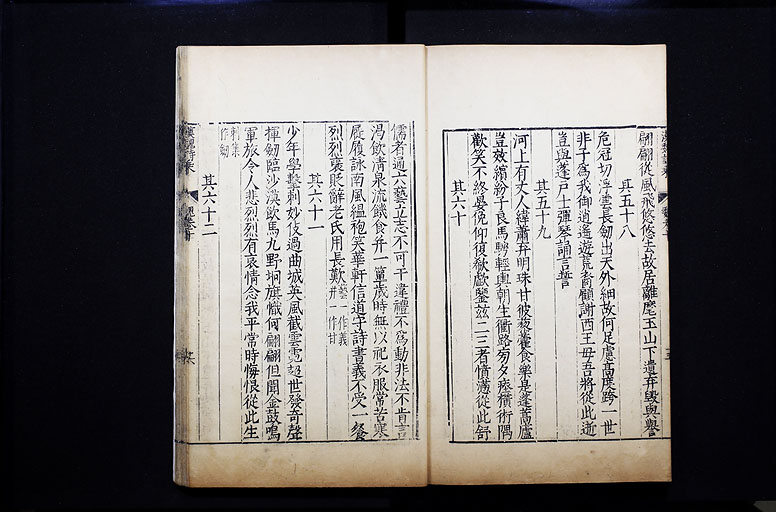 翩翩從風飛悠悠去故居離麾玉山下遺棄毀與譽
其五十八
危冠切浮雲長劒出天外細故何足慮高度跨一世
非子爲我御逍遙遊荒裔顧謝西王母吾將從此逝
豈與蓬戶士彈琴誦言誓
其五十九
河上有丈人緯蕭弃明珠甘彼藜藿食樂是蓬蒿廬
豈效繽紛子良馬騁輕輿朝生衢路旁夕瘞橫術隅
歡笑不終晏俛仰復欷歔鑒兹二三者憤滿從此舒
其六十
儒者通六藝立志不可干違禮不爲動非法不肯言
渴飲清泉流饑食并一簞歲時無以祀衣服常苦寒
屣履詠南風緼袍笑華軒信道守詩書義不受一餐
烈烈褒貶辭老氏用長歎
藝一作義
并一作甘
其六十一
少年學擊刺妙伎過曲城英風截雲霓超世發奇聲
揮劒臨沙漠飲馬九野坰旗幟何翩翩但聞金鼓鳴
軍旅令人悲烈烈有哀情念我平常時悔恨從此生
刺集
作劒
其六十二